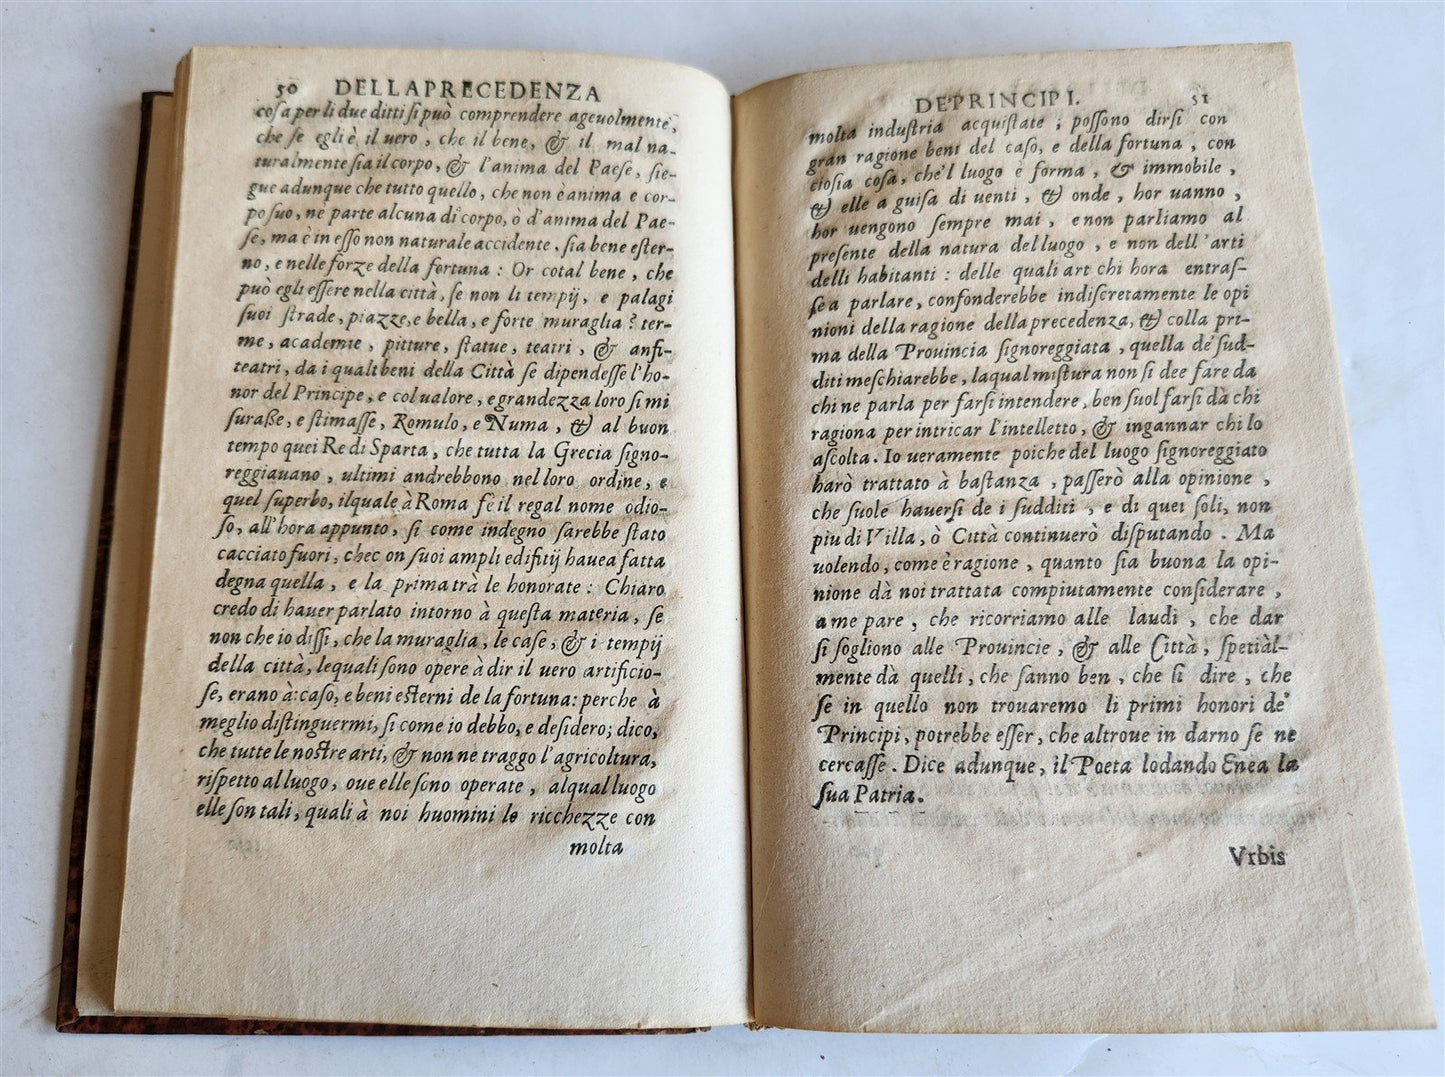 50 DELLA PRECEDENZA
cosa per li due ditti si può comprendere ageuolmente,
che se egli è il uero, che il bene, & il mal na-
turalmente sia il corpo, & l'anima del Paese, sie-
gue adunque che tutto quello, che non è anima e cor-
po suo, nè parte alcuna di corpo, ò d'anima del Pae-
se, ma è in esso non naturale accidente, sia bene ester-
no, e nelle forze della fortuna: Or cotal bene, che
può egli essere nella città, se non li tempij, e palagi
suoi strade, piazze, e bella, e forte muraglia? ter-
me, academie, pitture, statue, teatri, & anfi-
teatri, da i quali beni della Città se dipendesse l'ho-
nor del Principe, e col ualore, e grandezza loro si mi
suraße, e stimasse, Romulo, e Numa, & al buon
tempo quei Re di Sparta, che tutta la Grecia signo-
reggiauano, ultimi andrebbono nel loro ordine, e
quel superbo, il quale à Roma fe il regal nome odio-
so, all'hora appunto, si come indegno sarebbe stato
cacciato fuori, chec on suoi ampli edifitij hauea fatta
degna quella, e la prima trà le honorate: Chiaro
credo di hauer parlato intorno à questa materia, se
non che io dissi, che la muraglia, le case, & i tempij
della città, lequali sono opere à dir il uero artificio-
se, erano à: caso, e beni esterni de la fortuna: perche à
meglio distinguermi, si come io debbo, e desidero; dico,
che tutte le nostre arti, & non ne traggo l'agricoltura,
rispetto al luogo, oue elle sono operate, al qual luogo
elle son tali, quali à noi huomini le ricchezze con
molta
DE' PRINCIPI. 51
molta industria acquistate; possono dirsi con
gran ragione beni del caso, e della fortuna, con
ciosia cosa, che'l luogo è forma, & immobile,
& elle a guisa di uenti, & onde, hor uanno,
hor uengono sempre mai, e non parliamo al
presente della natura del luogo, e non dell'arti
delli habitanti: delle quali art chi hora entras-
se a parlare, confonderebbe indiscretamente le opi
nioni della ragione della precedenza, & colla pri-
ma della Prouincia signoreggiata, quella de' sud-
diti meschiarebbe, laqual mistura non si dee fare da
chi ne parla per farsi intendere, ben suol farsi dà chi
ragiona per intricar l'intelletto, & ingannar chi lo
ascolta. Io ueramente poiche del luogo signoreggiato
harò trattato à bastanza, passerò alla opinione,
che suole hauersi de i sudditi, e di quei soli, non
piu di Villa, ò Città continuerò disputando. Ma
uolendo, come è ragione, quanto sia buona la opi-
nione dà noi trattata compiutamente considerare,
a me pare, che ricorriamo alle laudi, che dar
si sogliono alle Prouincie, & alle Città, spetiàl-
mente dà quelli, che sanno ben, che si dire, che
se in quello non trouaremo li primi honori de'
Principi, potrebbe esser, che altroue in darno se ne
cercasse. Dice adunque, il Poeta lodando Enea la
sua Patria.
Vrbis